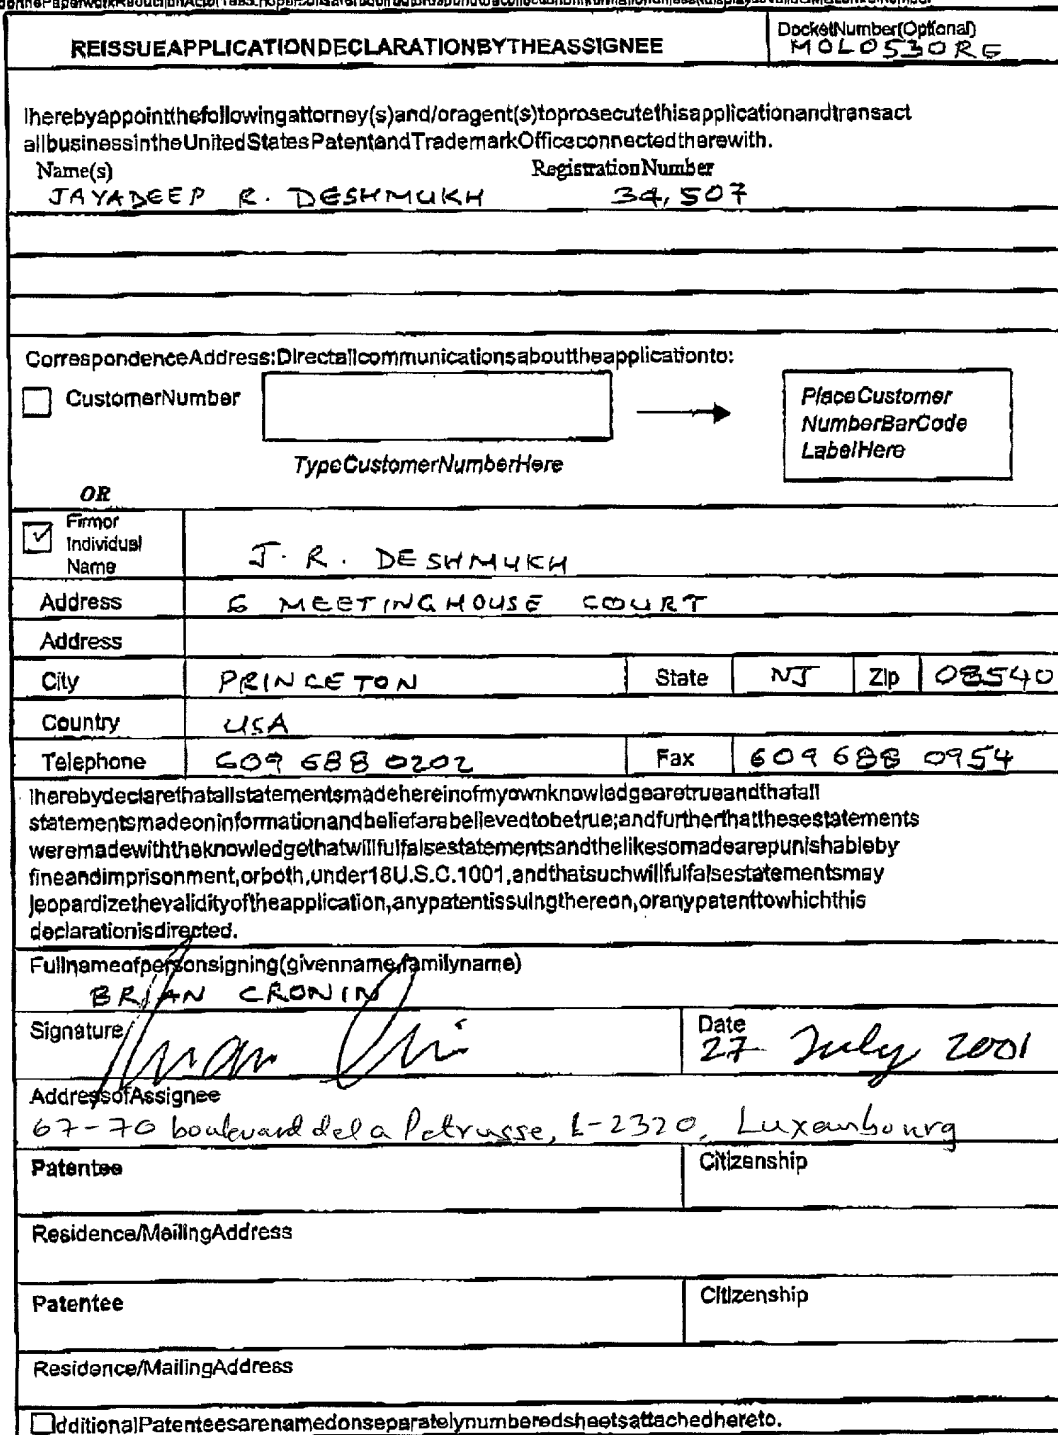 REISSUEAPPLICATIONDECLARATIONBYTHEASSIGNEE
DocketNumber(Optional)
MOL0530RE
Iherebyappointthefollowingattorney(s)and/oragent(s)toprosecutethisapplicationandtransact
allbusinessintheUnitedStatesPatentandTrademarkOfficeconnectedtherewith.
Name(s) RegistrationNumber
JAYADEEP R. DESHMUKH 34,507
CorrespondenceAddress:Directallcommunicationsabouttheapplicationto:
CustomerNumber
PlaceCustomer
NumberBarCode
LabelHere
TypeCustomerNumberHere
OR
Firmor
Individual
Name
J. R. DESHMUKH
Address 6 MEETINGHOUSE COURT
Address
City PRINCETON State NJ Zip 08540
Country USA
Telephone 609 688 0202 Fax 609 688 0954
Iherebydeclarethatallstatementsmadehereinofmyownknowledgearetrueandthatall
statementsmadeoninformationandbeliefarebelievedtobetrue;andfurtherthatthesestatements
weremadewiththeknowledgethatwillfulfalsestatementsandthelikesomadearepunishableby
fineandimprisonment,orboth,under18U.S.C.1001,andthatsuchwillfulfalsestatementsmay
jeopardizethevalidityoftheapplication,anypatentissuingthereon,oranypatenttowhichthis
declarationisdirected.
Fullnameofpersonsigning(givenname,familyname)
BRIAN CRONIN
Signature
Date
27 July 2001
AddressofAssignee
67-70 boulevard de la Petrusse, L-2320, Luxembourg
Patentee Citizenship
Residence/MailingAddress
Patentee Citizenship
Residence/MailingAddress
dditionalPatenteesarenamedonseparatelynumberedsheetsattachedhereto.